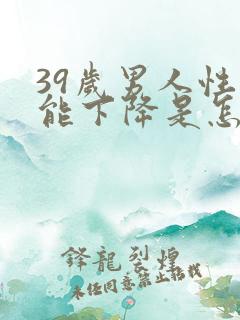 39歲男人性
能下降是怎
鋒龍烈煌
未经同意禁止搭我